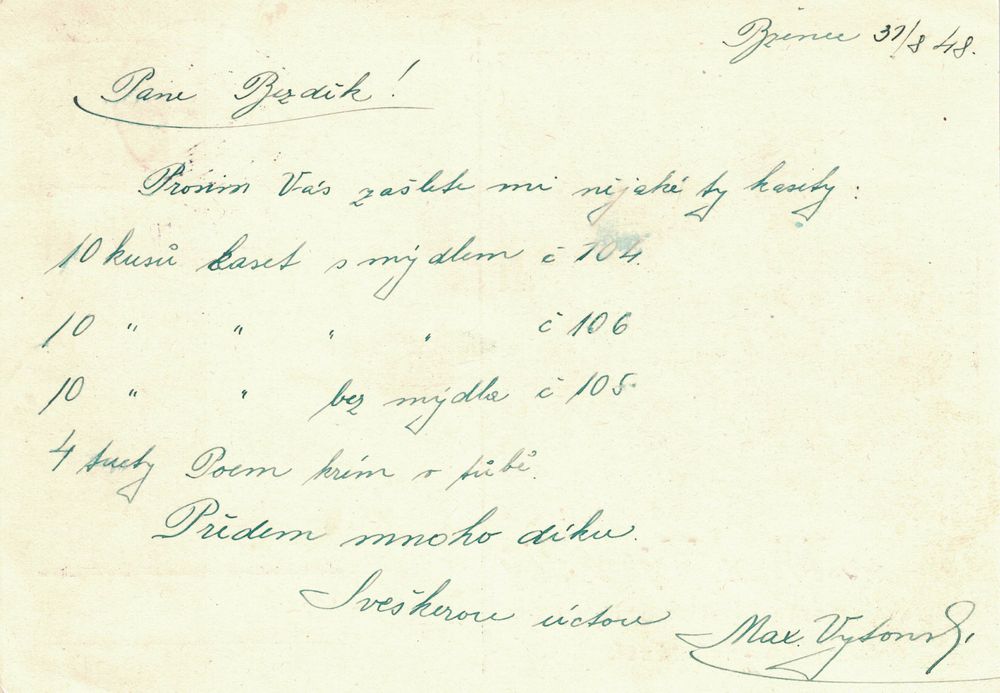 Bzenec 31/8 48.
Pane Bezděk!
Prosím Vás zašlete mi nějaké ty kasety.
10 kusů kaset s mýdlem č 104.
10 " " " " č 106
10 " " bez mýdla č 105
4 tucty Poem krém v tůbě.
Předem mnoho díku.
Sveškerou úctou Max.